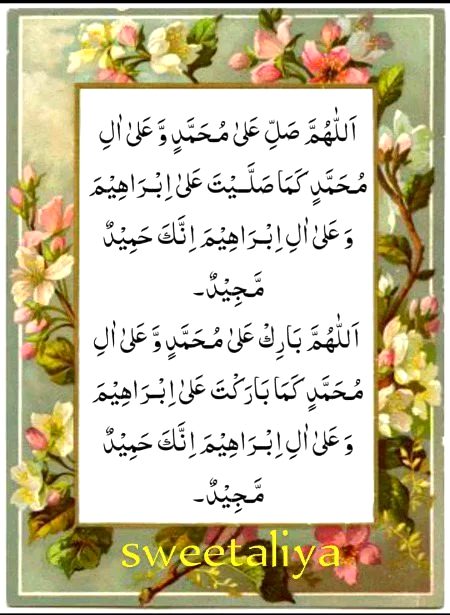 اَللّٰهُمَّ صَلِّ عَلٰی مُحَمَّدٍ وَّ عَلٰی اٰلِ
مُحَمَّدٍ کَمَا صَلَّیْتَ عَلٰی اِبْرَاهِیْمَ
وَ عَلٰی اٰلِ اِبْرَاهِیْمَ اِنَّكَ حَمِیْدٌ
مَّجِیْدٌ۔
اَللّٰهُمَّ بَارِكْ عَلٰی مُحَمَّدٍ وَّ عَلٰی اٰلِ
مُحَمَّدٍ کَمَا بَارَکْتَ عَلٰی اِبْرَاهِیْمَ
وَ عَلٰی اٰلِ اِبْرَاهِیْمَ اِنَّكَ حَمِیْدٌ
مَّجِیْدٌ۔
sweetaliya